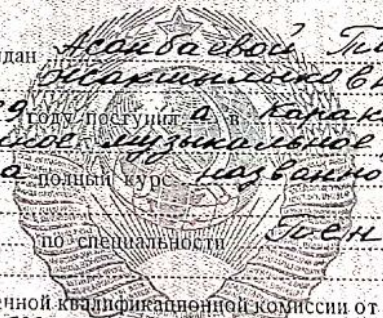 дан Асанбаевой
Жакшылыковн
9 году поступила в Карак
ное музыкальное
а полный курс названно
по специальности
енной квалификационной комиссии от